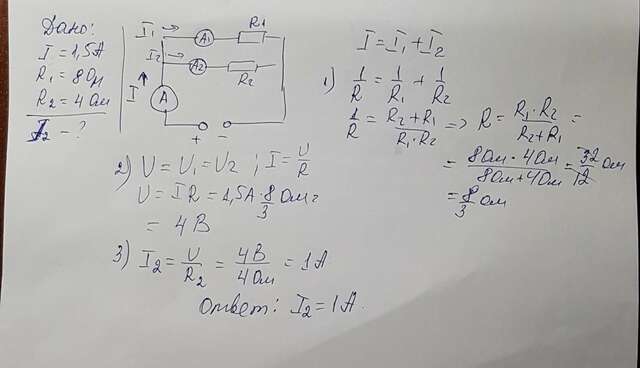 Дано:
I = 1,5 А
R₁ = 8 Ом
R₂ = 4 Ом
I₂ - ?
I₁ → A₁ R₁
I₂ → A₂ R₂
I ↑ A
+ -
I = I₁ + I₂
1) 1/R = 1/R₁ + 1/R₂
1/R = (R₂ + R₁)/(R₁·R₂) => R = (R₁·R₂)/(R₂+R₁) =
= (8 Ом · 4 Ом)/(8 Ом + 4 Ом) = 32/12 Ом
= 8/3 Ом
2) U = U₁ = U₂ ; I = U/R
U = IR = 1,5А · 8/3 Ом =
= 4 В
3) I₂ = U/R₂ = 4В/4Ом = 1 А
Ответ: I₂ = 1 А.